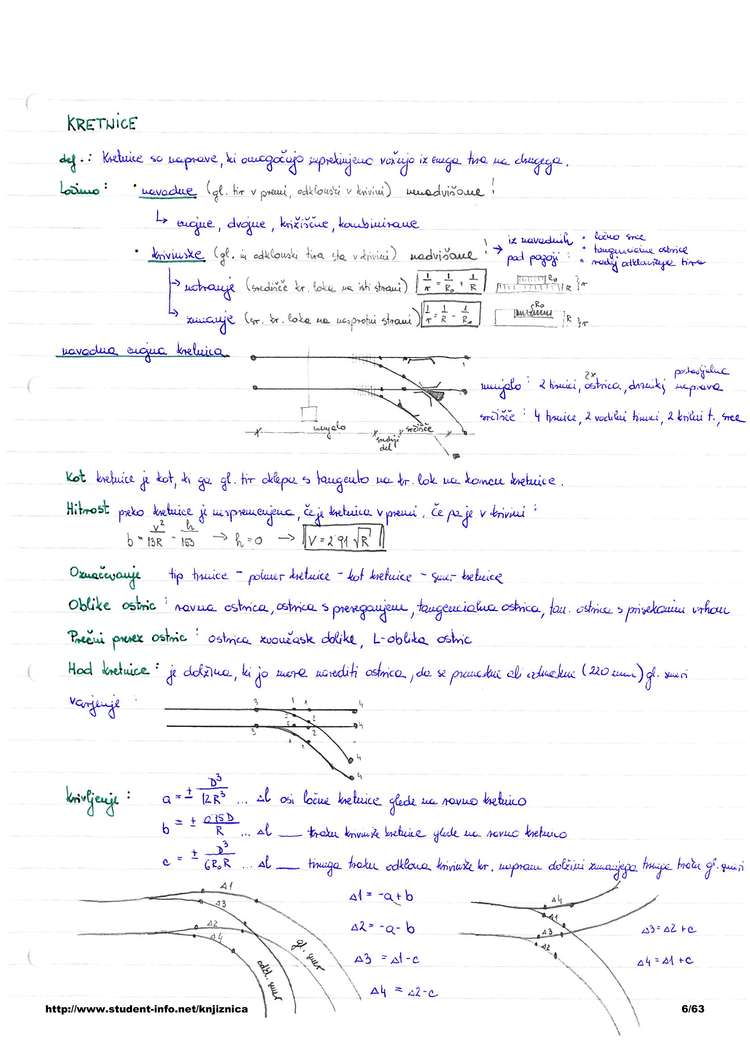 KRETNICE
def.: Kretnice so naprave, ki omogočajo neprekinjeno vožnjo iz enega tira na drugega.
Ločimo: • navadne (gl. tir v premi, odklonski v krivini) nenadvišane!
↳ enojne, dvojne, križiščne, kombinirane
• krivinske (gl. in odklonski tira sta v krivini) nadvišane! → iz navadnih pod pogoji: • ločno srce
• tangencialne ostrice
• radij odklonskega tira
→ notranje (središče kr. loka na isti strani) 1/r = 1/R₀ + 1/R R₀ R r
↳ zunanje (sr. kr. loka na nasprotni strani) 1/r = 1/R - 1/R₀ R₀ R r
navadna enojna kretnica
menjalo srednji del srčišče
menjalo: 2 tirnici, 2x ostrica, drsniki, postavljalna naprava
srčišče: 4 tirnice, 2 vodilni tirnici, 2 krilni t., srce
Kot kretnice je kot, ki ga gl. tir oklepa s tangento na kr. lok na koncu kretnice.
Hitrost preko kretnice je nespremenjena, če je kretnica v premi. Če pa je v krivini:
b = v²/13R - h/153 → h=0 → V = 2'91 √R
Označevanje tip tirnice - polmer kretnice - kot kretnice - smer kretnice
Oblike ostric: ravna ostrica, ostrica s preseganjem, tangencialna ostrica, tan. ostrica s prisekanim vrhom
Prečni prerez ostric: ostrica zvončaste oblike, L-oblika ostric
Hod kretnice: je dolžina, ki jo mora narediti ostrica, da se primakne ali odmakne (220 mm) gl. smeri
Varjenje:
3 1 1 4
3 2 2 4
1 2
4
4
Krivljenje: a = ± D³/12R³ ... Δl osi ločne kretnice glede na ravno kretnico
b = ± 0'75D/R ... Δl __ traku krivinske kretnice glede na ravno kretnico
c = ± D³/6R₀R ... Δl __ tirnega traku odklona krivinske kr. napram dolžini zunanjega tirnega traku gl. smeri
Δ1
Δ3
Δ2
Δ4
gl. smer
odkl. smer
Δ1 = -a + b
Δ2 = -a - b
Δ3 = Δ1 - c
Δ4 = Δ2 - c
Δ4
Δ1
Δ3
Δ2
Δ3 = Δ2 + c
Δ4 = Δ1 + c
http://www.student-info.net/knjiznica 6/63